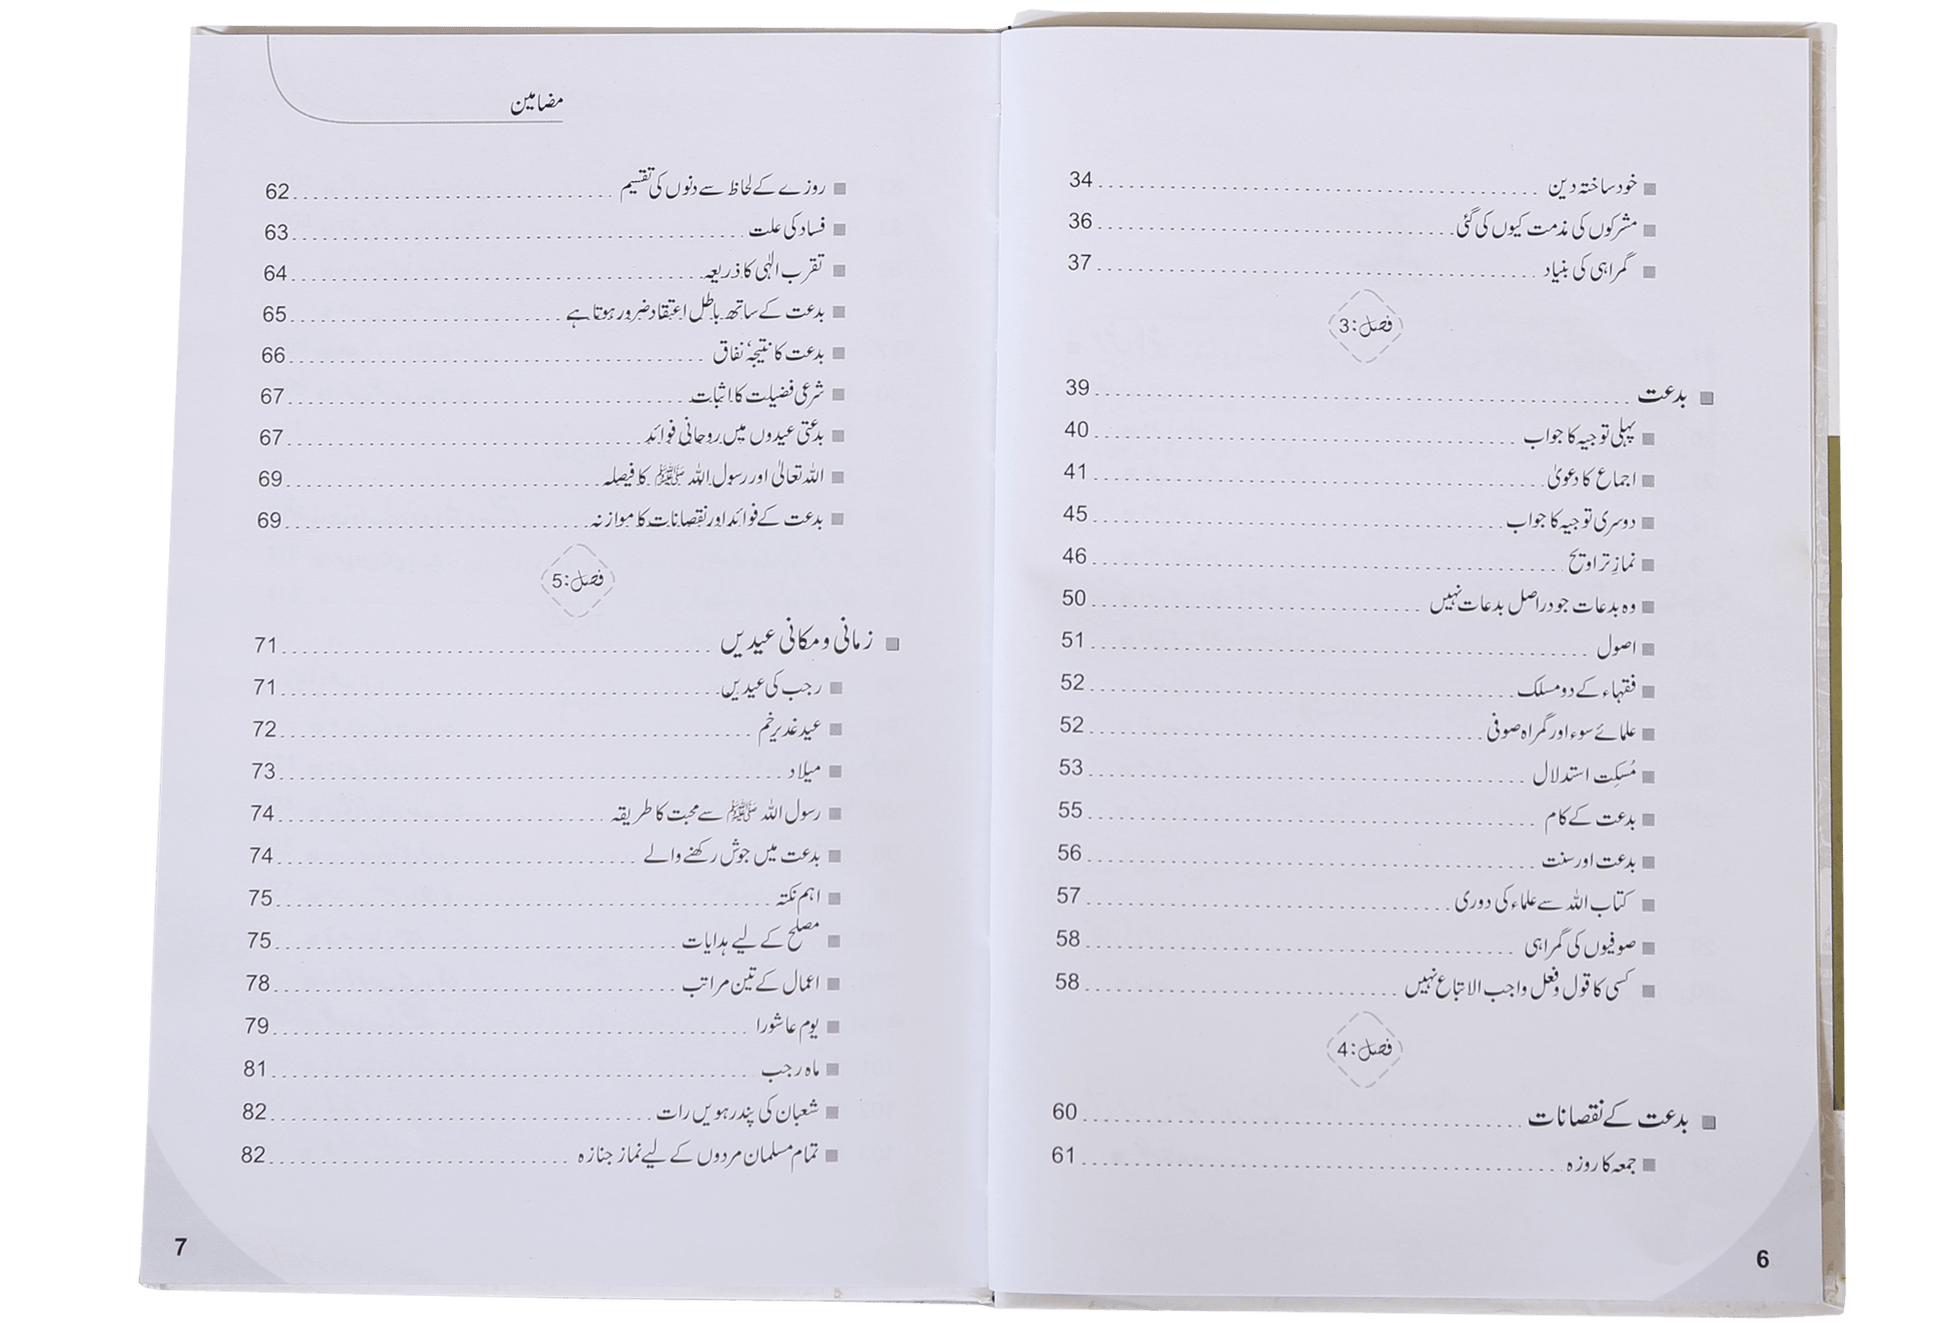 خود ساختہ دین 34
مشرکوں کی مذمت کیوں کی گئی 36
گمراہی کی بنیاد 37
فصل: 3
بدعت 39
پہلی توجیہ کا جواب 40
اجماع کا دعویٰ 41
دوسری توجیہ کا جواب 45
نمازِ تراویح 46
وہ بدعات جو دراصل بدعات نہیں 50
اصول 51
فقہاء کے دو مسلک 52
علمائے سوء اور گمراہ صوفی 52
مُسکِت استدلال 53
بدعت کے کام 55
بدعت اور سنت 56
کتاب اللہ سے علماء کی دوری 57
صوفیوں کی گمراہی 58
کسی کا قول وفعل واجب الاتباع نہیں 58
فصل: 4
بدعت کے نقصانات 60
جمعہ کا روزہ 61
6
مضامین
روزے کے لحاظ سے دنوں کی تقسیم 62
فساد کی علت 63
تقرب الٰہی کا ذریعہ 64
بدعت کے ساتھ باطل اعتقاد ضرور ہوتا ہے 65
بدعت کا نتیجہ نفاق 66
شرعی فضیلت کا اثبات 67
بدعتی عیدوں میں روحانی فوائد 67
اللہ تعالیٰ اور رسول اللہ ﷺ کا فیصلہ 69
بدعت کے فوائد اور نقصانات کا موازنہ 69
فصل: 5
زمانی و مکانی عیدیں 71
رجب کی عیدیں 71
عید غدیر خم 72
میلاد 73
رسول اللہ ﷺ سے محبت کا طریقہ 74
بدعت میں جوش رکھنے والے 74
اہم نکتہ 75
مصلح کے لیے ہدایات 75
اعمال کے تین مراتب 78
یوم عاشورا 79
ماہ رجب 81
شعبان کی پندرہویں رات 82
تمام مسلمان مردوں کے لیے نماز جنازہ 82
7